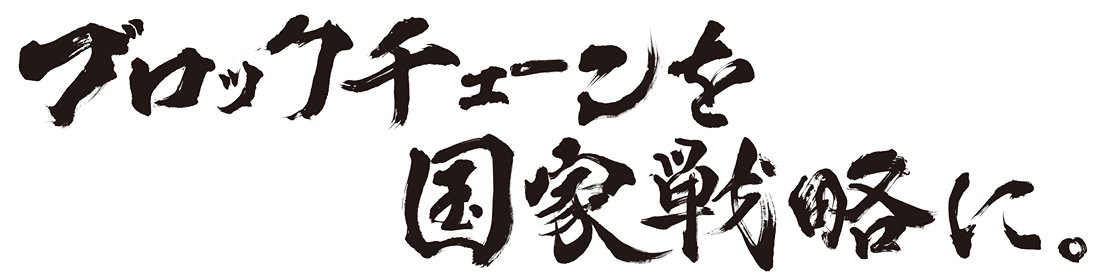 ブロックチェーンを
国家戦略に。